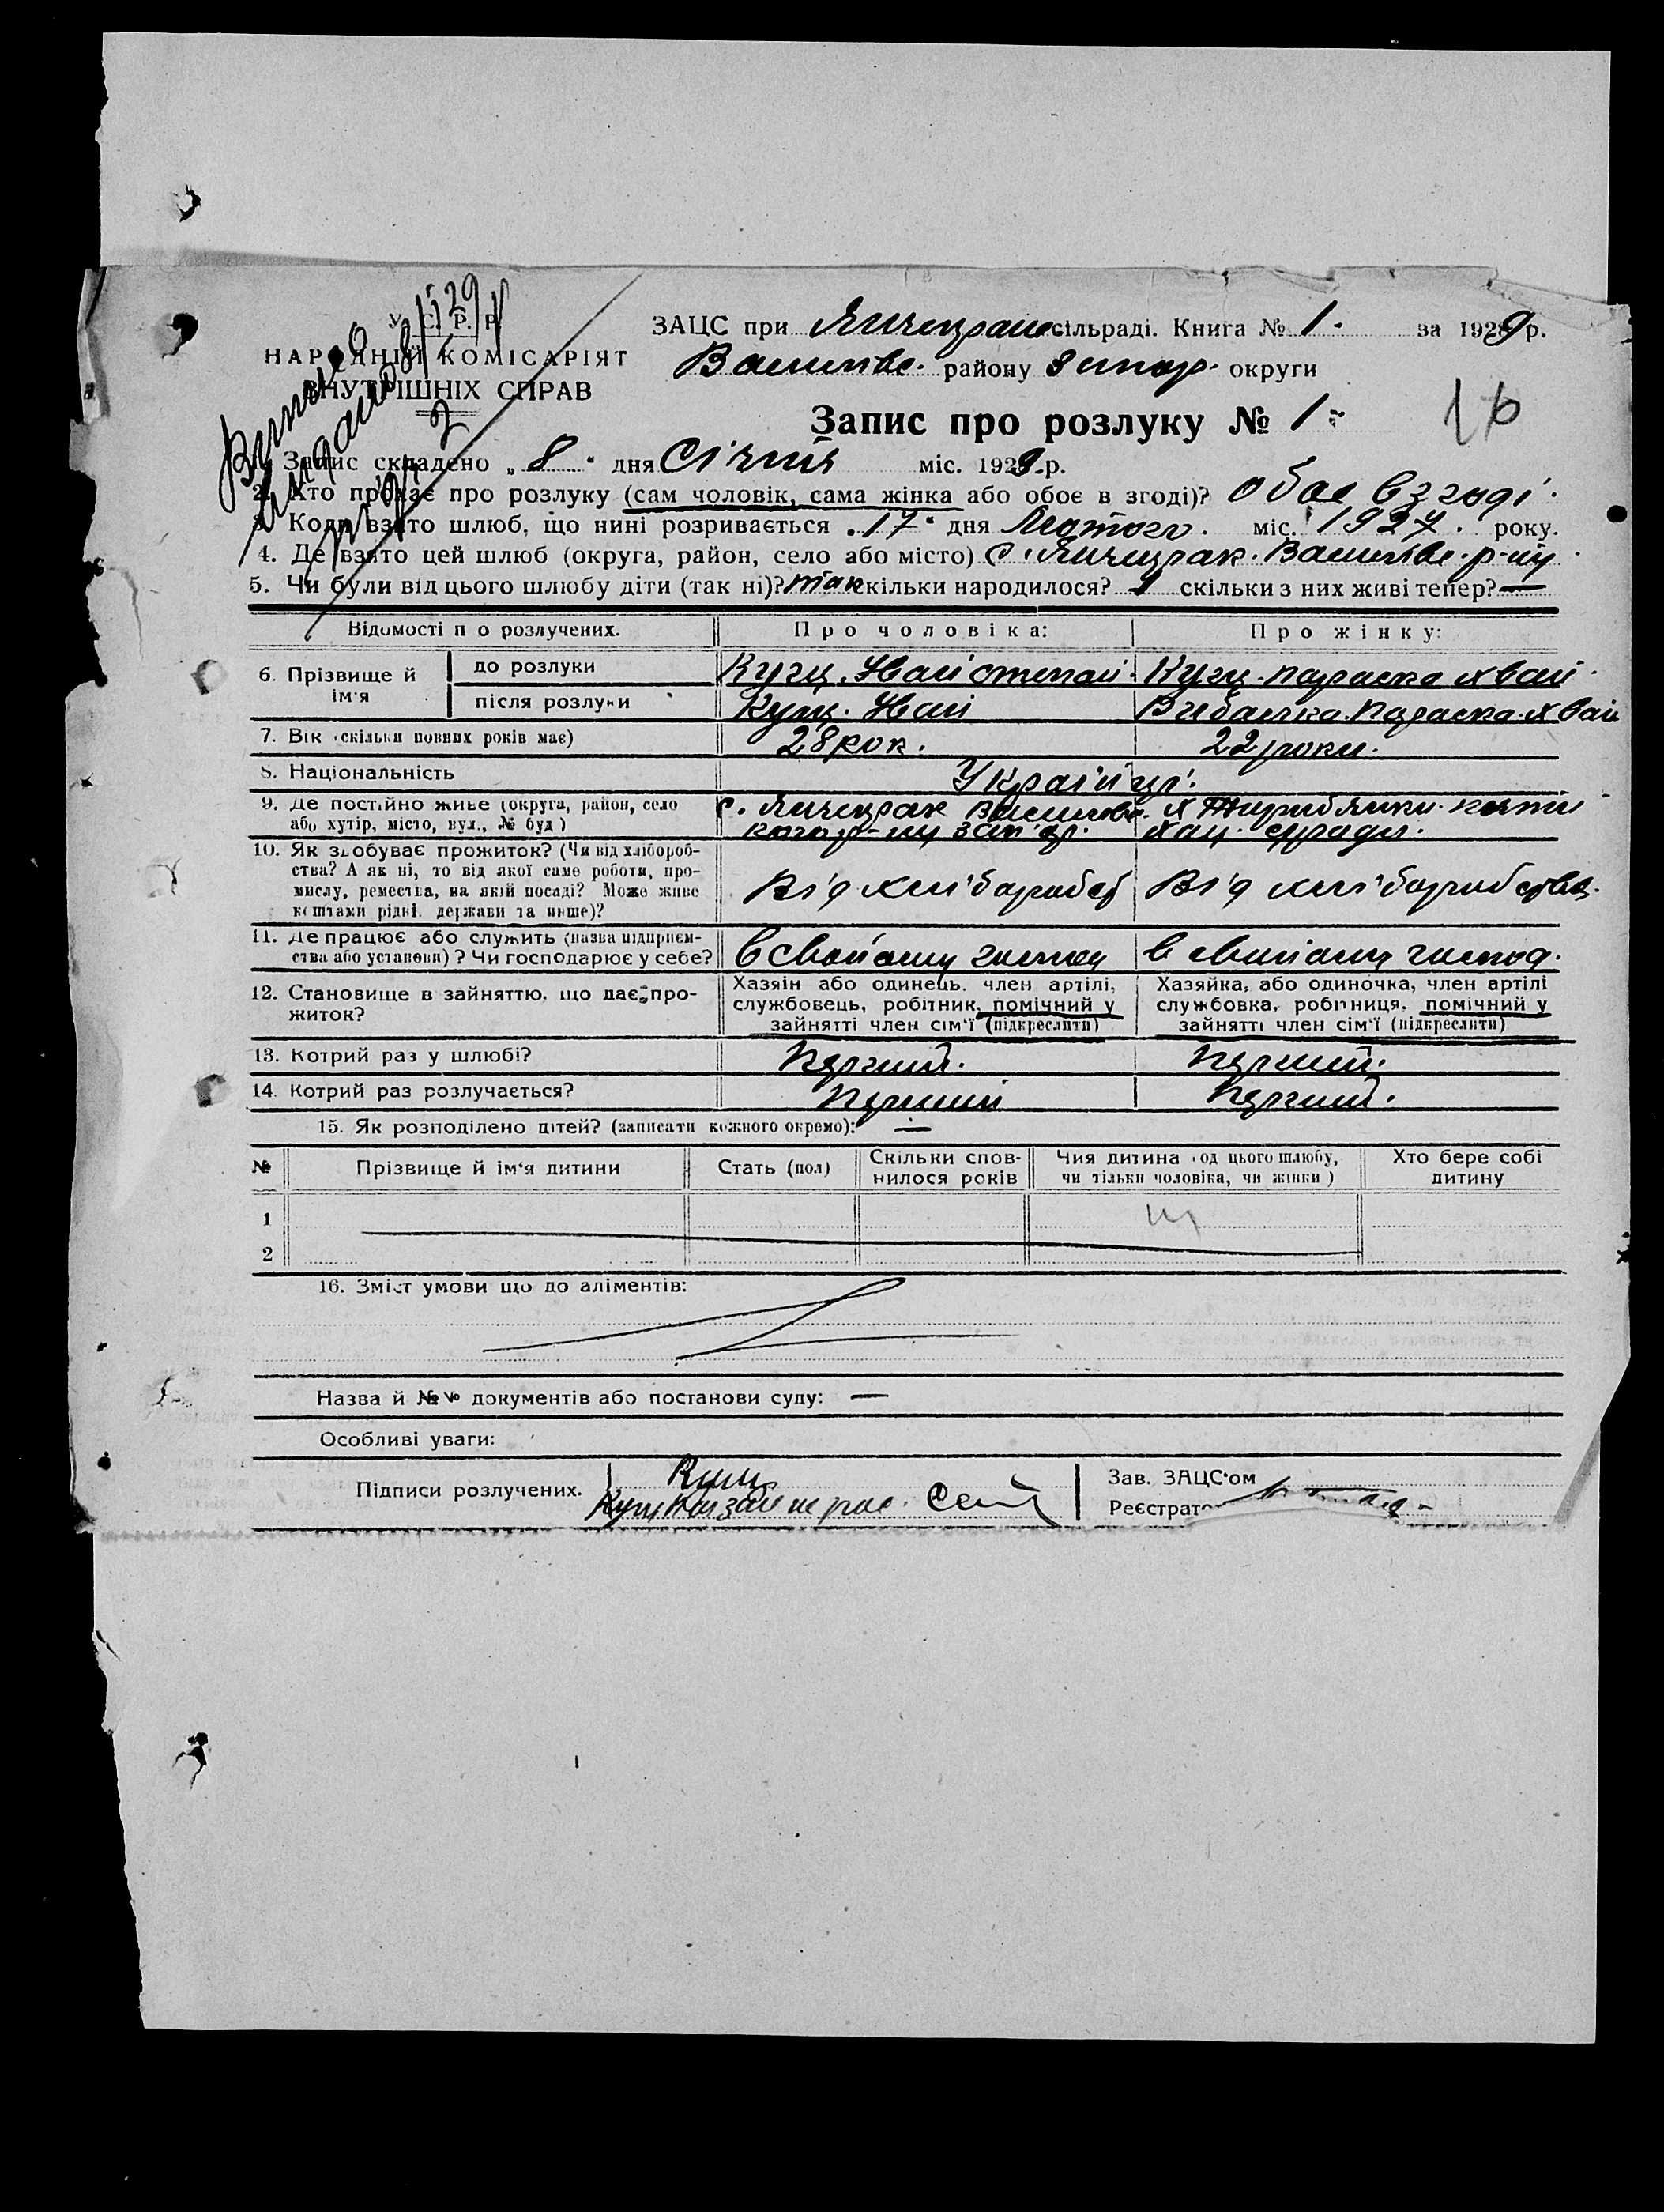 У. С. Р. Р.
НАРОДНІЙ КОМІСАРІЯТ
ВНУТРІШНІХ СПРАВ
ЗАЦС при сільраді. Книга № 1. за 1929 р.
Василівс. району Запор. округи
Запис про розлуку № 1.
Запис складено „8“ дня Січня міс. 1929 р.
2. Хто прохає про розлуку (сам чоловік, сама жінка або обоє в згоді)? Обое в згоді.
3. Коли взято шлюб, що нині розривається „17“ дня Лютого. міс. 1927. року.
4. Де взято цей шлюб (округа, район, село або місто) с. Янчекрак. Васильвс. р-ну
5. Чи були від цього шлюбу діти (так ні)? так скільки народилося? 1 скільки з них живі тепер? —
Відомості про розлучених.
Про чоловіка:
Про жінку:
6. Прізвище й ім'я
до розлуки
Кущ. Іван Степан.
Кущ. Параска
після розлуки
Кущ. Іван
Параска.
7. Вік (скільки повних років має)
28 рок.
22 роки.
8. Національність
Українці.
9. Де постійно живе (округа, район, село
або хутір, місто, вул., № буд.)
с. Янчекрак
10. Як здобуває прожиток? (Чи від хлібороб-
ства? А як ні, то від якої саме роботи, про-
мислу, ремества, на якій посаді? Може живе
коштами рідні, держави та инше)?
Від хліборобст
Від хліборобства.
11. Де працює або служить (назва підприєм-
ства або установи)? Чи господарює у себе?
в свойому господ
в свойому господ.
12. Становище в зайняттю, що дає про-
житок?
Хазяін або одинець, член артілі,
службовець, робітник, помічний у
зайнятті член сім'ї (підкреслити)
Хазяйка, або одиночка, член артілі
службовка, робітниця, помічний у
зайнятті член сім'ї (підкреслити)
13. Котрий раз у шлюбі?
Перший.
Перший.
14. Котрий раз розлучається?
Перший
Перший.
15. Як розподілено дітей? (записати кожного окремо): —
№
Прізвище й ім'я дитини
Стать (пол)
Скільки спов-
нилося років
Чия дитина (од цього шлюбу,
чи тільки чоловіка, чи жінки)
Хто бере собі
дитину
1
2
16. Зміст умови що до аліментів:
Назва й №№ документів або постанови суду: —
Особливі уваги:
Підписи розлучених.
Кущ
Зав. ЗАЦС'ом
Реєстрато